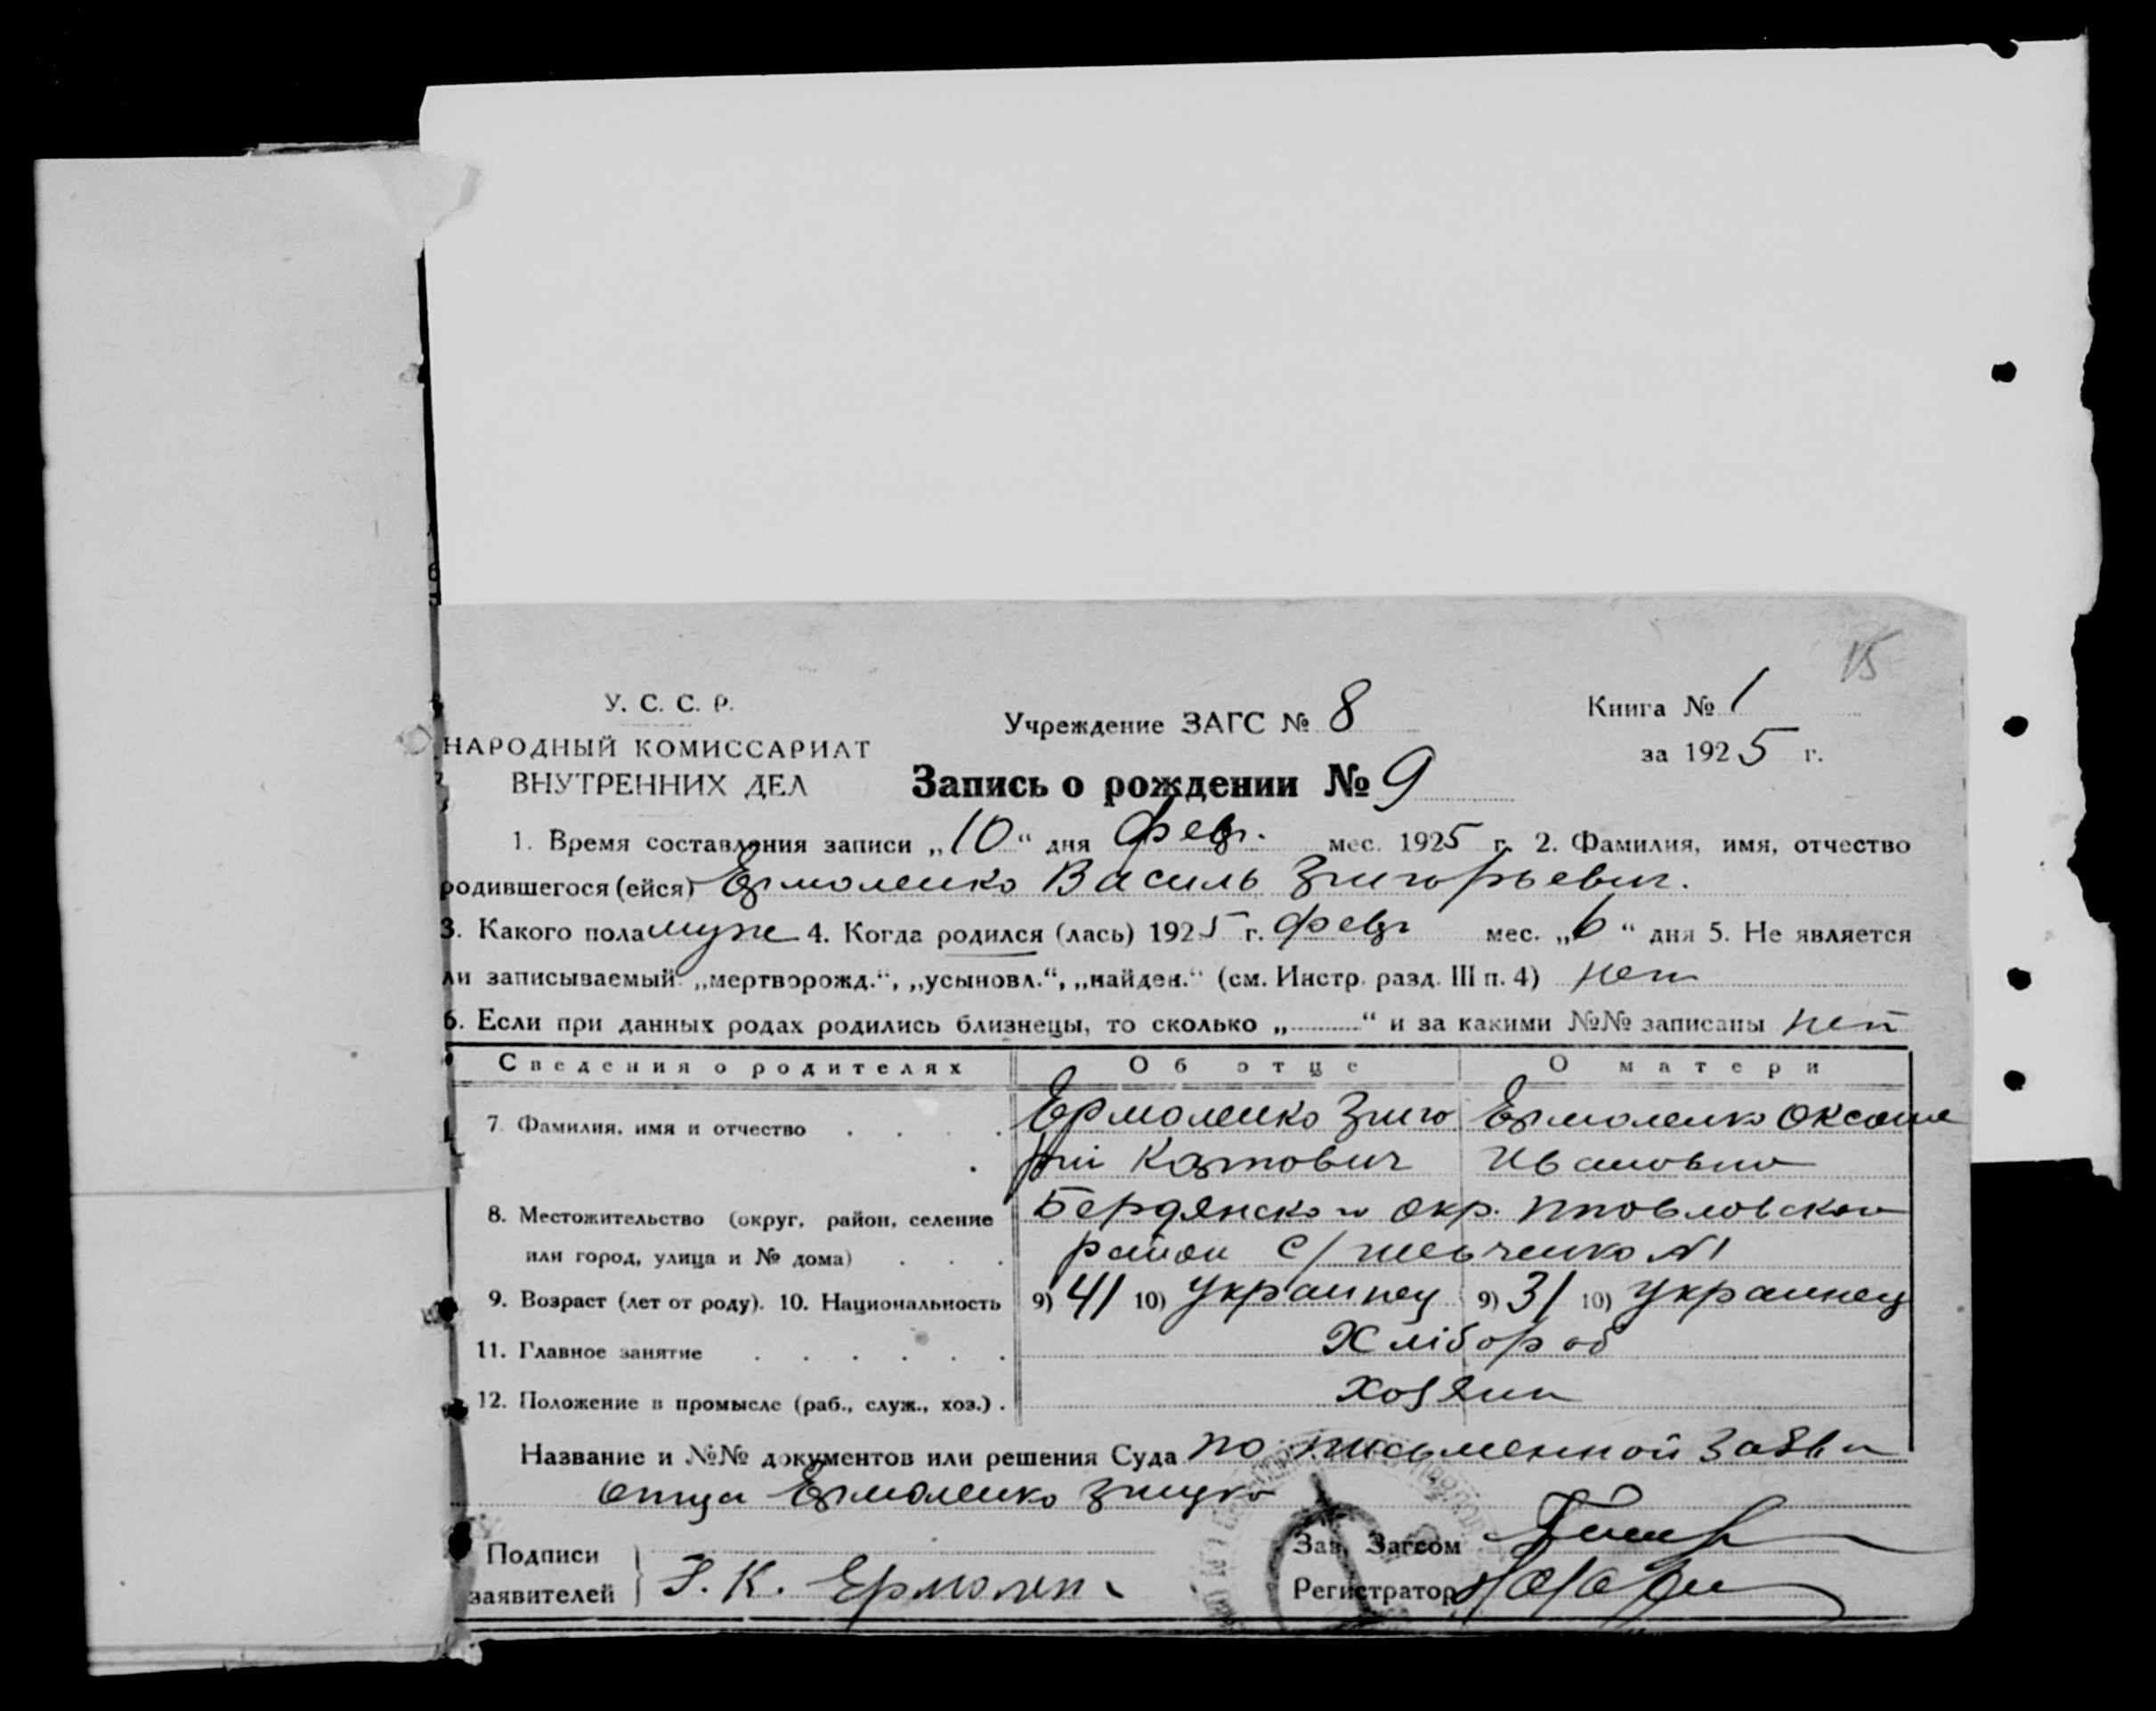 15
У. С. С. Р.
НАРОДНЫЙ КОМИССАРИАТ
ВНУТРЕННИХ ДЕЛ
Учреждение ЗАГС № 8
Книга № 1
за 1925 г.
Запись о рождении № 9
1. Время составления записи „10“ дня февр. мес. 1925 г. 2. Фамилия, имя, отчество
родившегося (ейся) Ермоленко Василь Григорьевич.
3. Какого пола муж 4. Когда родился (лась) 1925 г. февр мес. „6“ дня 5. Не является
ли записываемый „мертворожд.“, „усыновл.“, „найден.“ (см. Инстр. разд. III п. 4) нет
6. Если при данных родах родились близнецы, то сколько „ “ и за какими №№ записаны нет
Сведения о родителях Об отце О матери
7. Фамилия, имя и отчество Ермоленко Григо Ермоленко Оксана
рій Ивановна
8. Местожительство (округ, район, селение Бердянского окр.
или город, улица и № дома) район №1
9. Возраст (лет от роду). 10. Национальность 9) 41 10) украинец 9) 31 10) украинец
11. Главное занятие Хлібороб
12. Положение в промысле (раб., служ., хоз.) хозяин
Название и №№ документов или решения Суда по письменной заяви
отца Ермоленко
Подписи
заявителей Г. К. Ермолен
Зав. Загсом
Регистратор